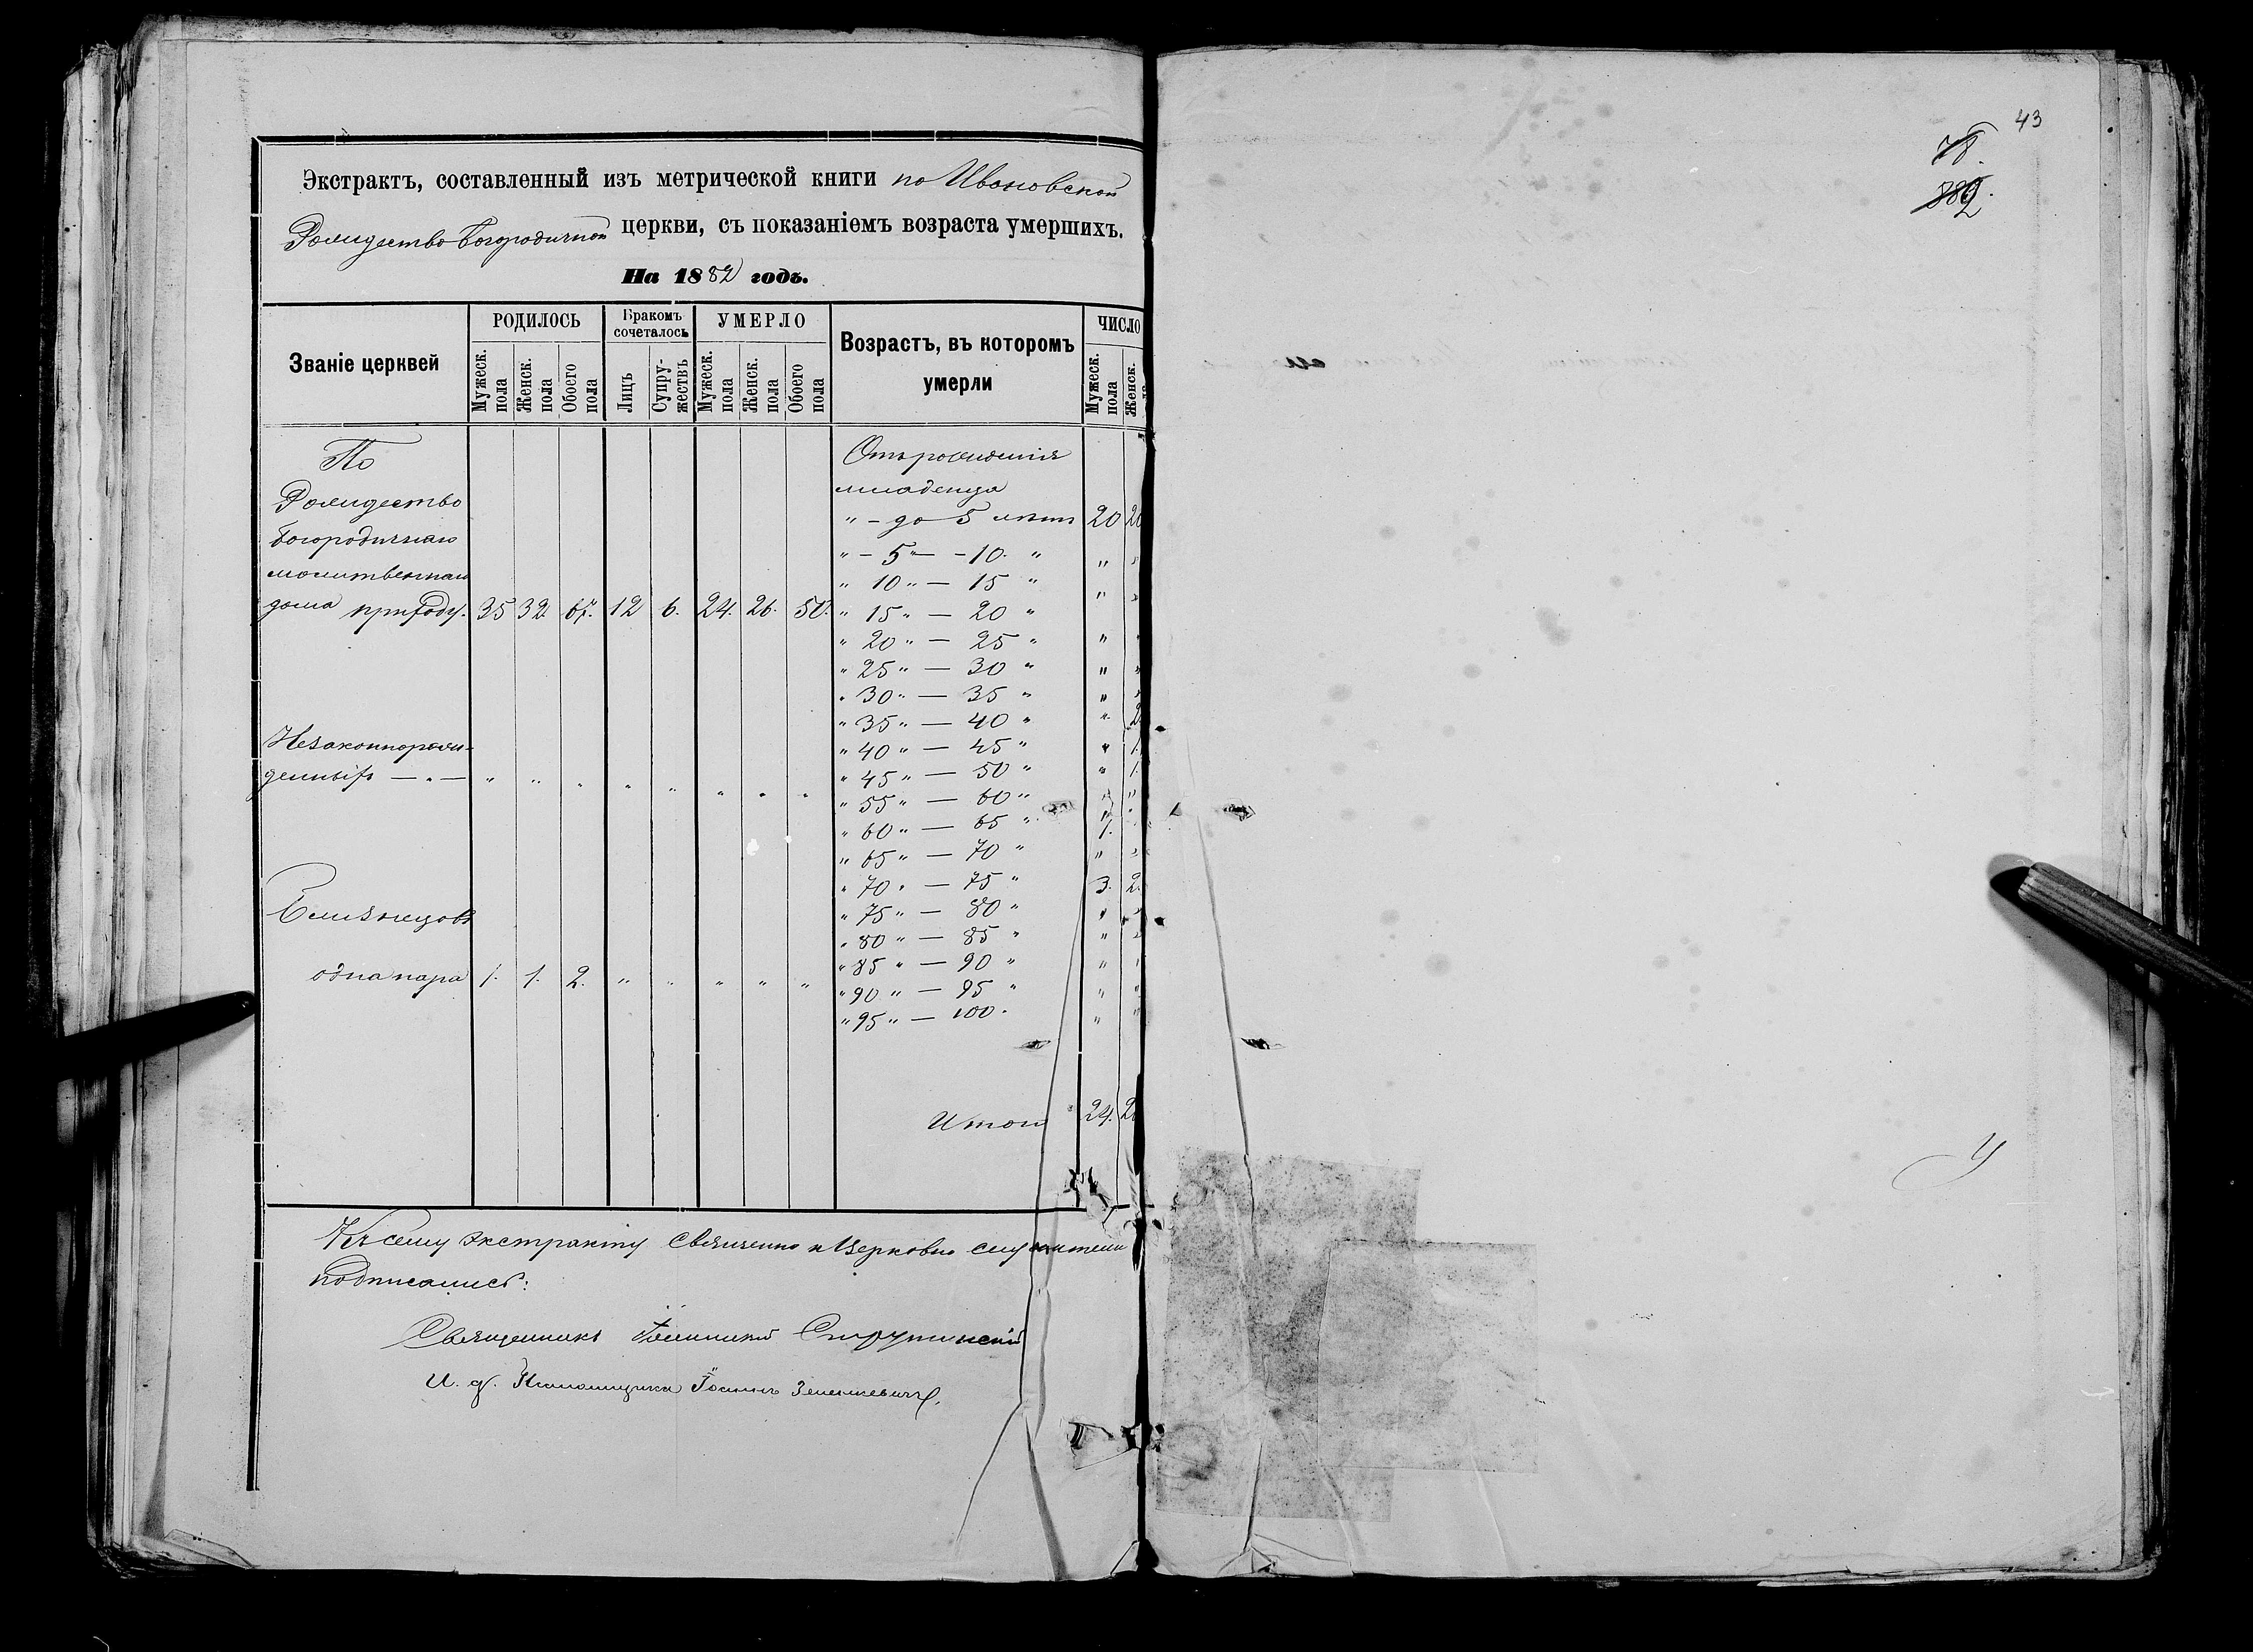 Экстрактъ, составленный изъ метрической книги по Ивановской
Рождество Богородичной церкви, съ показаніемъ возраста умершихъ.
На 1882 годъ.
Званіе церквей
РОДИЛОСЬ
Мужеск. пола
Женск. пола
Обоего пола
Бракомъ сочеталось
Лицъ
Супружествъ
УМЕРЛО
Мужеск. пола
Женск. пола
Обоего пола
Возрастъ, въ которомъ умерли
ЧИСЛО
Мужеск. пола
Женск.
По
Рождество
Богородичнаго
молитвеннаго
дома приходу. 35 32. 67. 12 6. 24. 26. 50.
Незаконнорож-
денныхъ — " — " " " " " " " "
Близнецовъ
одна пара 1. 1. 2. " " " " "
Отъ рожденія
младенца
" - до 5 летъ 20 20
" - 5 " - 10. " " "
" 10 " — 15 " " "
" 15 " — 20 "
" 20 " — 25 " " "
" 25 " — 30 " " "
" 30 " — 35 " " "
" 35 " — 40 " " 2.
" 40 " — 45 " " 1.
" 45 " — 50 " " 1.
" 55 " — 60 " " "
" 60 " — 65 " 1. "
" 65 " — 70 " " "
" 70 " — 75 " 3. 2.
" 75 " — 80 " " "
" 80 " — 85 " " "
" 85 " — 90 " " "
" 90 " — 95 " " "
" 95 " — 100. " "
Итого 24. 2
Къ сему экстракту священно и Церковно служители
подписались:
Священникъ Струтинскій
И. д. Псаломщика Іоаннъ
43